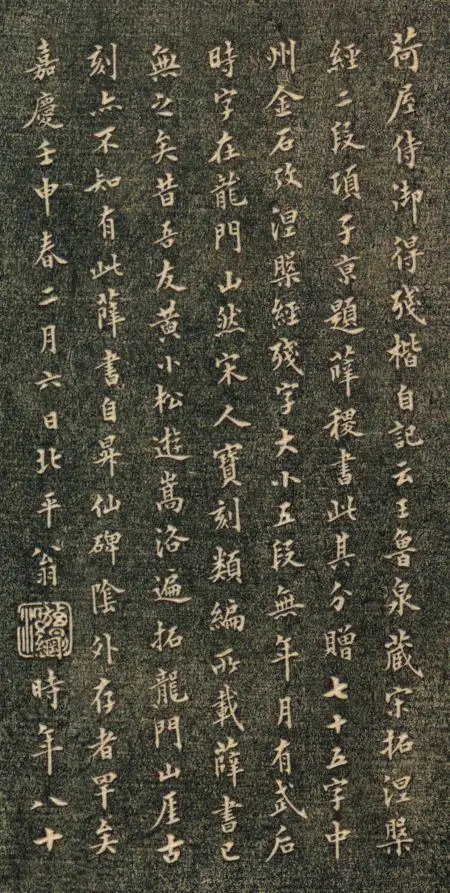 荷屋侍御得殘楷自記云王魯泉藏宋拓涅槃
經二段項子京題薛稷書此其分贈七十五字中
州金石攷涅槃經殘字大小五段無年月有武后
時字在龍門山然宋人寶刻類編所載薛書已
無之矣昔吾友黃小松遊嵩洛遍拓龍門山厓古
刻亦不知有此薛書自昇仙碑陰外存者罕矣
嘉慶壬申春二月六日北平翁方綱時年八十